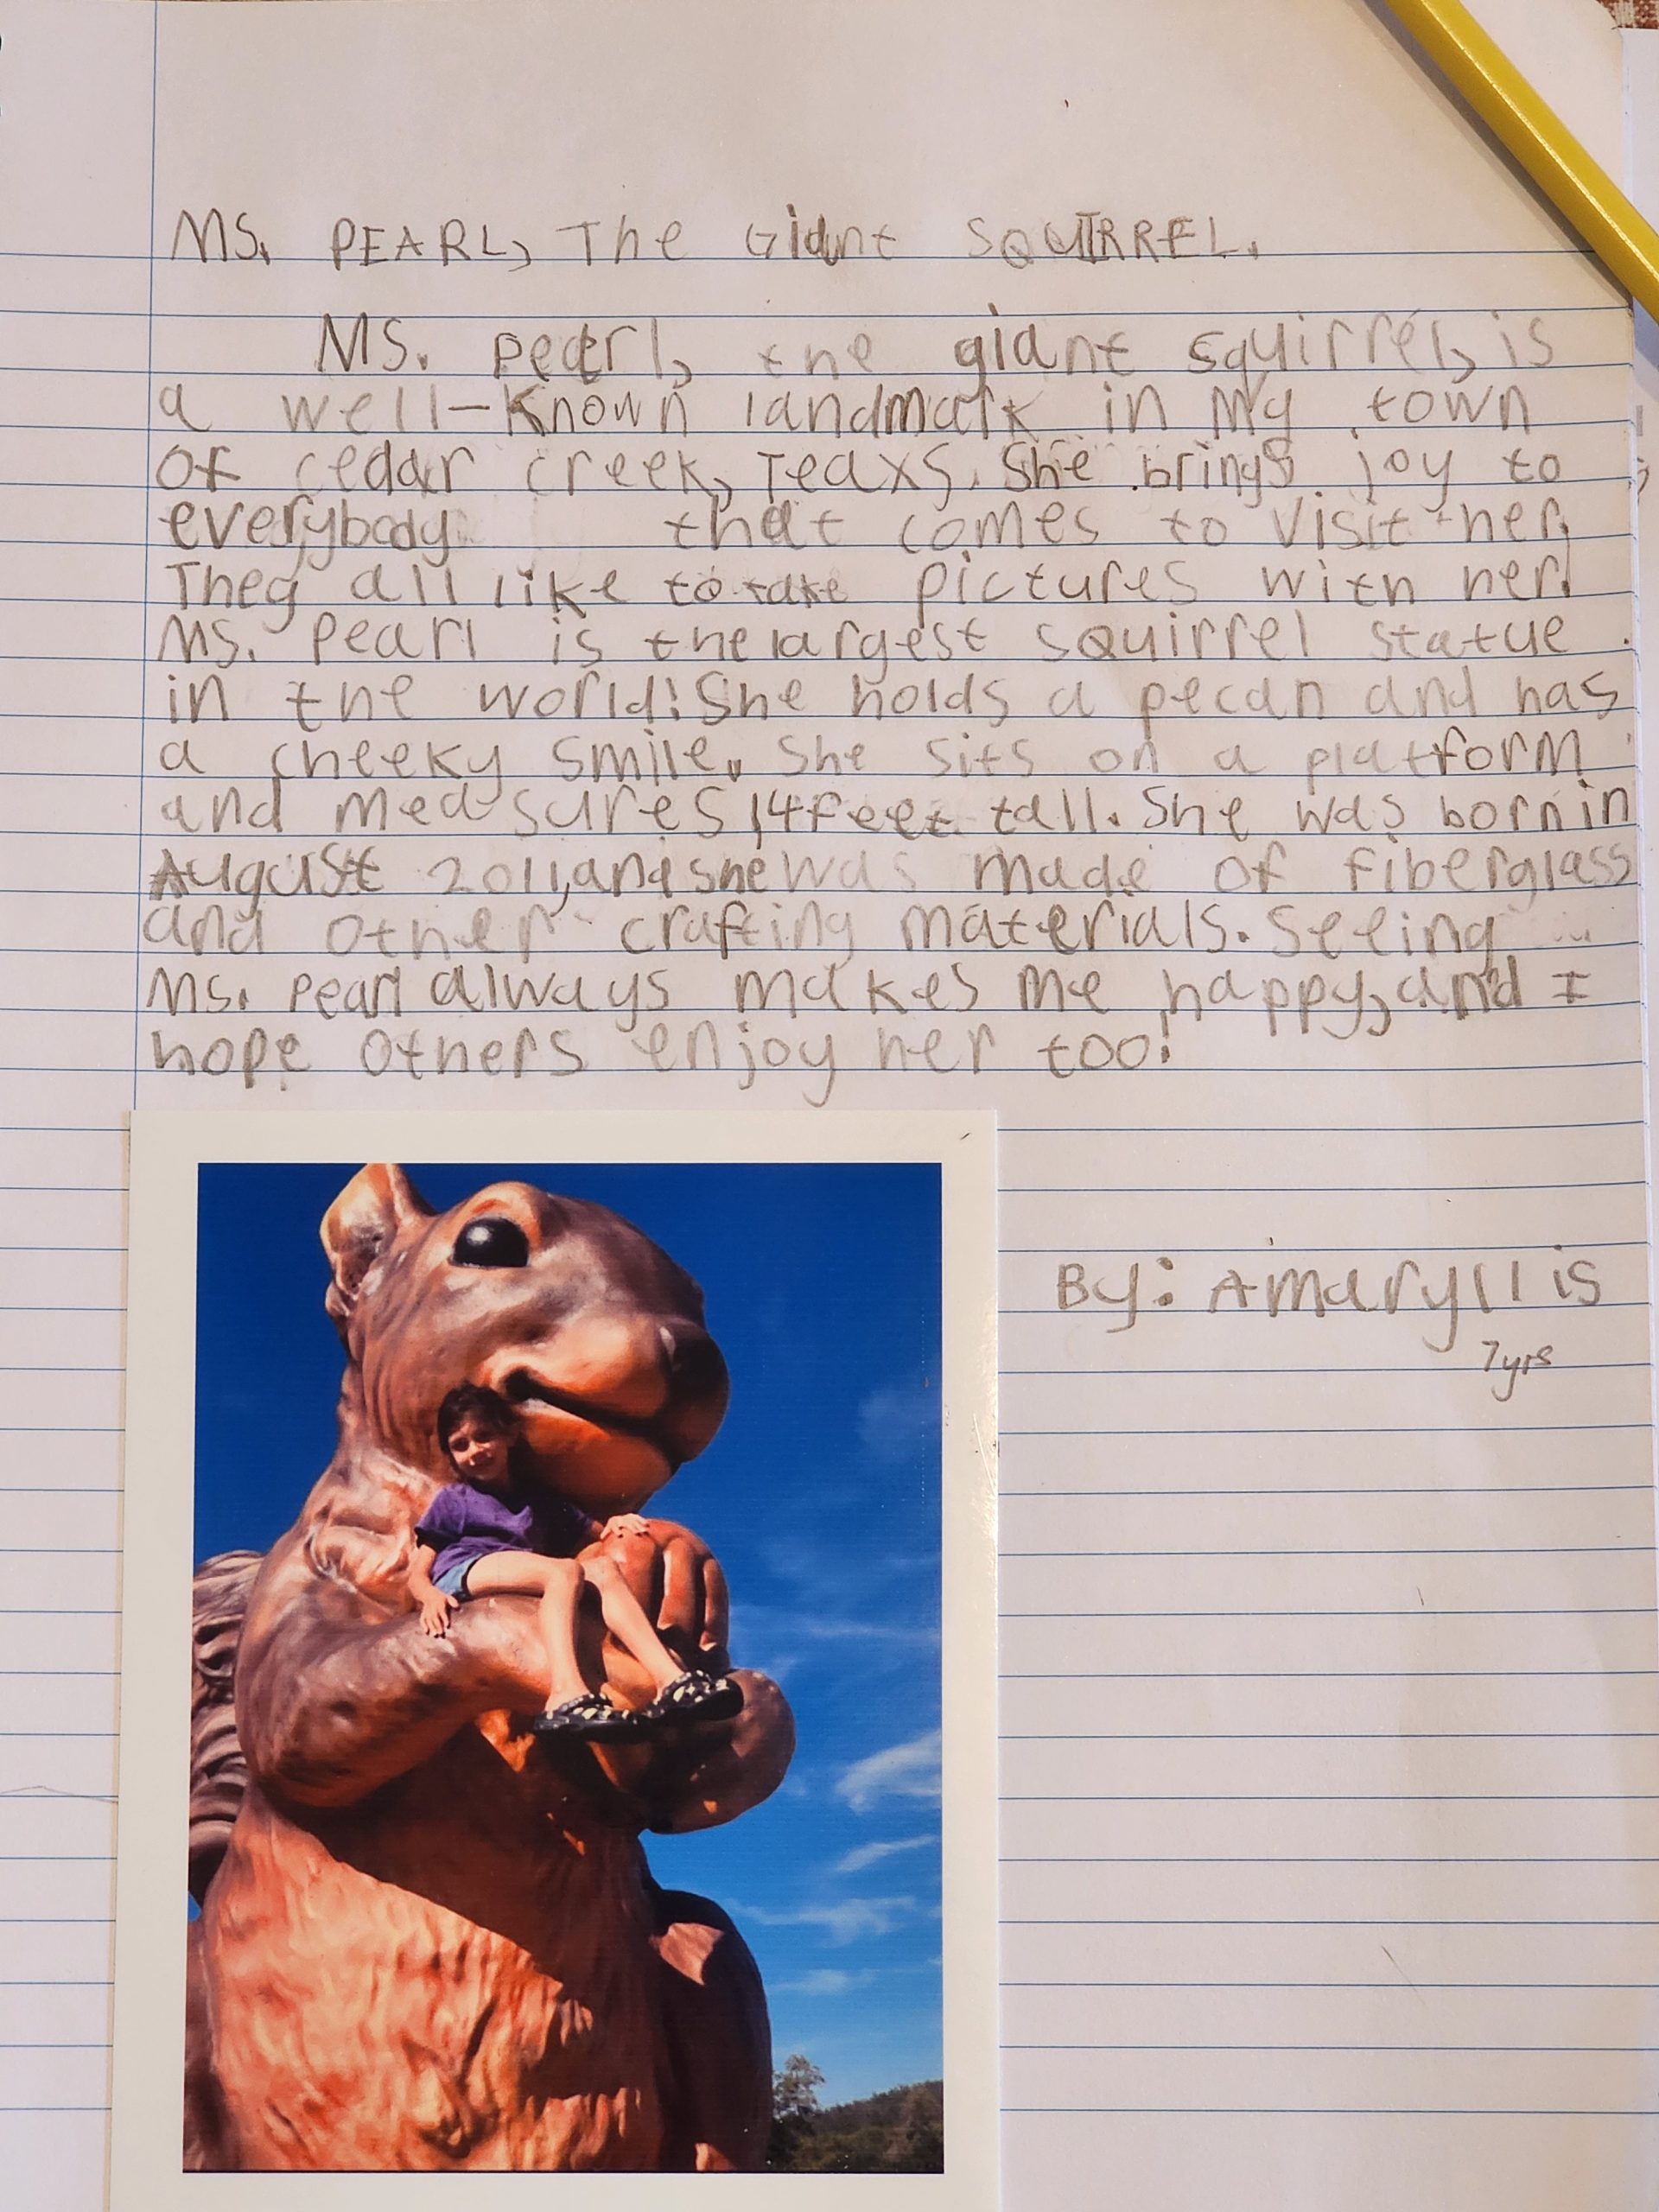 MS. PEARL, The Giant SQUIRREL.
MS. pearl, the giant squirrel, is
a well-known landmark in My town
Of cedar creek, Teaxs. She brings joy to
everybody that comes to visit her.
They all like to take pictures with her.
Ms. Pearl is the largest squirrel statue
in the world! She holds a pecan and has
a cheeky smile. She sits on a platform
and measures 14 feet tall. She was born in
August 2011, and she was made of fiberglass
and other crafting materials. Seeing
Ms. Pearl always makes me happy, and I
hope others enjoy her too!
By: Amaryllis
7yrs